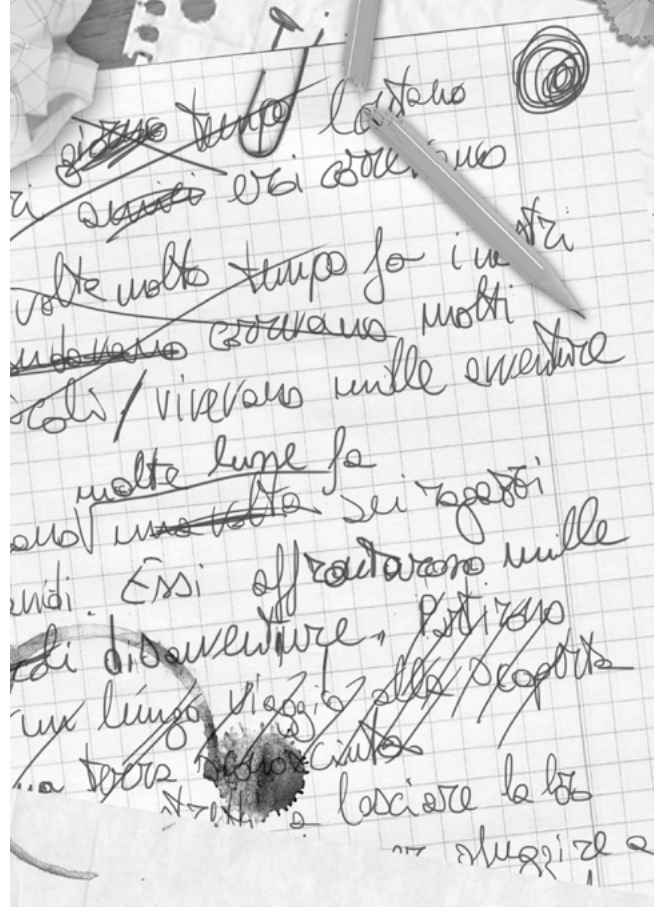 giorno tempo lontano
ri amici eroi correvano
volte molto tempo fa i nostri
andavano correvano molti
icoli / vivevano mille avventure
molte lune fa
una volta sei ragazzi
Essi affrontarono mille
di disavventure. Partirono
un lungo viaggio alla scoperta
terra sconosciuta
a lasciare la loro
sfuggire a